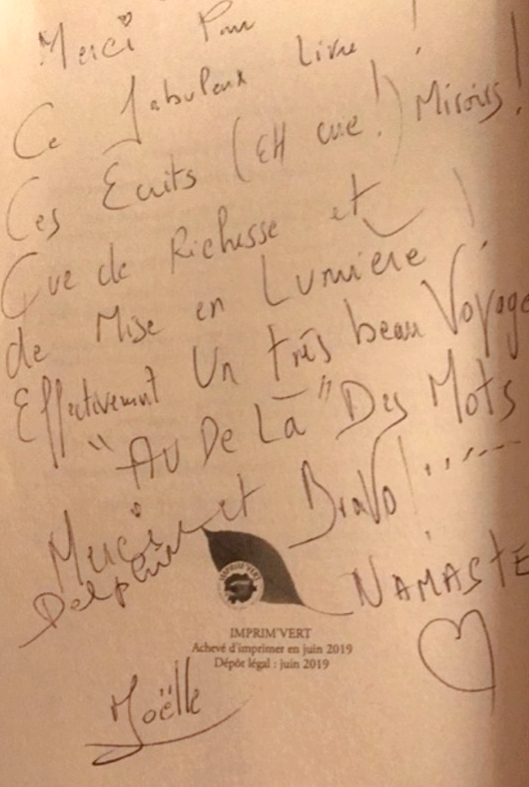 Merci Pour
Ce fabuleux Livre !
Ces Ecrits (Et oui !) Miroirs !
Que de Richesse et
de Mise en Lumière !
Effectivement Un très beau Voyage
"Au De Là" Des Mots
Merci et Bravo ! .....
Delphine
NAMASTE
IMPRIM'VERT
IMPRIM'VERT
Achevé d'imprimer en juin 2019
Dépôt légal : juin 2019
Joëlle